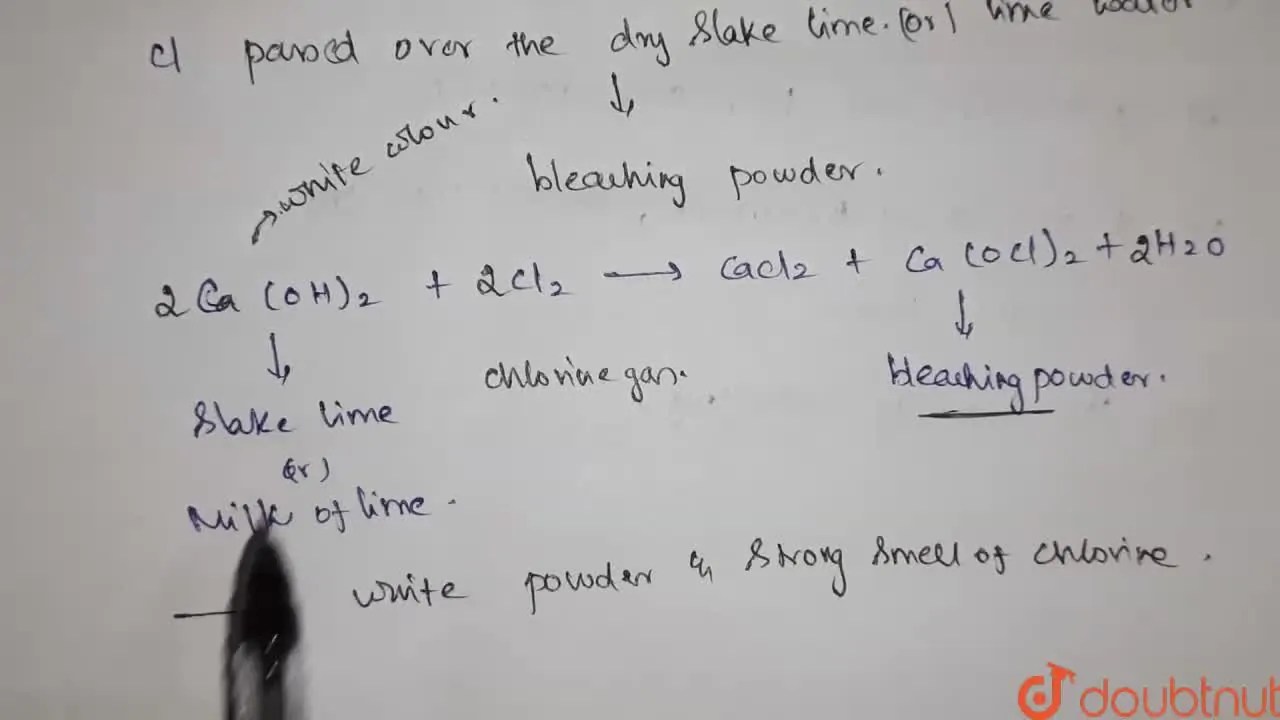 Cl passed over the dry slake lime. (or) lime water
↓
→ white colour.
bleaching powder.
2Ca(OH)2 + 2Cl2 → CaCl2 + Ca(OCl)2 + 2H2O
↓ ↓
chlorine gas. bleaching powder.
Slake lime
(or)
Milk of lime.
white powder & strong smell of chlorine.
doubtnut